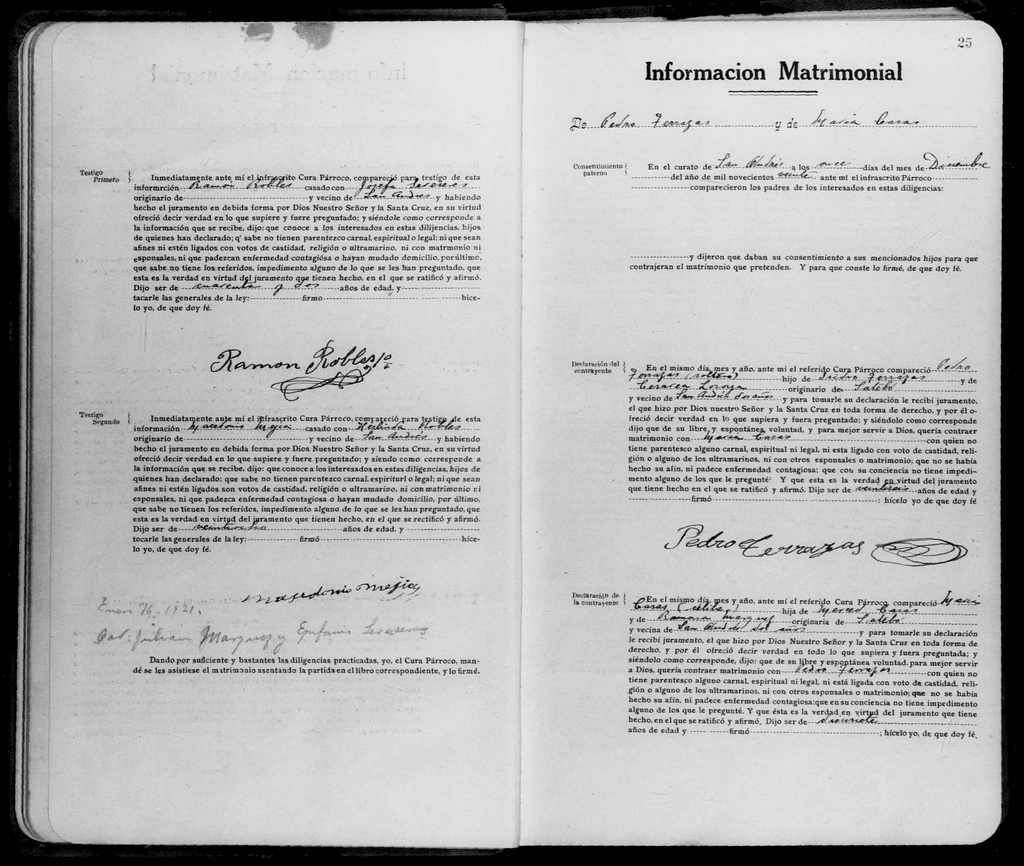 Testigo
Primero
Inmediatamente ante mí el infrascrito Cura Párroco, compareció para testigo de esta
informrción Ramón Robles casado con Josefa
originario de y vecino de San Andres y habiendo
hecho el juramento en debida forma por Dios Nuestro Señor y la Santa Cruz, en su virtud
ofreció decir verdad en lo que supiere y fuere preguntado; y siéndole como corresponde a
la información que se recibe, dijo: que conoce a los interesados en estas dilijencias, hijos
de quienes han declarado; q' sabe no tienen parentezco carnal, espiritual o legal; ni que sean
afines ni estén ligados con votos de castidad, religión o ultramarino, ni con matrimonio ni
esponsales, ni que padezcan enfermedad contagiósa o hayan mudado domicilio, por último,
que sabe no tiene los referidos, impedimento alguno de lo que se les han preguntado, que
esta es la verdad en virtud del juramento que tienen hecho, en el que se ratificó y afirmó.
Dijo ser de cuarenta y dos años de edad, y
tacarle las generales de la ley: firmo hice-
lo yo, de que doy fé.
Ramon Robles
Testigo
Segundo
Inmediatamente ante mí el infrascrito Cura Párroco, compareció para testigo de esta
información Macedonio Mejia casado con Herlinda Robles
originario de y vecino de San Andres y habiendo
hecho el juramento en debida forma por Dios Nuestro Señor y la Santa Cruz, en su virtud
ofreció decir verdad en lo que supiere y fuere preguntado; y siendo como corresponde a
la información que se recibe, dijo: que conoce a los interesados en estas diligencias, hijos de
quienes han declarado; que sabe no tienen parentezco carnal, espiriturl o legal; ni que sean
afines ni estén ligados son votos de castidad, religión o ultramarino, ni con matrimonio ni
esponsales, ni que padezca enfermedad contagiosa o hayan mudado domicilio, por último,
que sabe no tienen los referidos, impedimento alguno de lo que se les han preguntado, que
esta es la verdad en virtud del juramento que tienen hecho, en el que se rectificó y afirmó.
Dijo ser de veintiocho años de edad, y
tocarle las generales de la ley: firmó hice-
lo yo, de que doy fé.
Masedonio mejia
Enero 16. 1921.
Julian Marquez y Epifania
Dando por suficiente y bastantes las diligencias practicadas, yo, el Cura Párroco, man-
dé se les asistiese el matrimonio asentando la partida en el libro correspondiente, y lo firmé.
25
Informacion Matrimonial
De Pedro Terrazas y de Maria Caras
Consentimiento
paterno
En el curato de San Andrés a los once días del mes de Diciembre
del año de mil novecientos veinte ante mi el infrascrito Párroco
comparecieron los padres de los interesados en estas diligencias:
y dijeron que daban su consentimiento a sus mencionados hijos para que
contrajeran el matrimonio que pretenden. Y para que conste lo firmó, de que doy fé.
Declaración del
contrayente
En el mismo día, mes y año, ante mí el referido Cura Párroco compareció Pedro
Terrazas (soltero) hijo de Isidro Terrazas y de
originario de Satebó
y vecino de San Andrés dos años y para tomarle su declaración le recibí juramento,
el que hizo por Dios nuestro Señor y la Santa Cruz en toda forma de derecho, y por él o-
freció decir verdad en lo que supiera y fuera preguntado; y siéndolo como corresponde
dijo que de su libre y espontánea, voluntad, y para mejor servir a Dios, quería contraer
matrimonio con Maria Caras con quien no
tiene parentesco alguno carnal, espiritual ni legal, ni esta ligado con voto de castidad, reli-
gión o alguno de los ultramarinos, ni con otros esponsales o matrimonio; que no se había
hecho su afín, ni padece enfermedad contagiosa; que con su conciencia no tiene impedi-
mento alguno de los que le pregunté Y que esta es la verdad en virtud del juramento
que tiene hecho, en el que se ratificó y afirmó. Dijo ser de veintiseis años de edad y
firmó ; hícelo yo de que doy fé
Pedro Terrazas
Declaración de
la contrayente
En el mismo dia, mes y año, ante mí el referido Cura Párroco, compareció Maria
Caras (célibe) hija de Merced Caras
y de Ramona Marquez originaria de Satebó
y vecina de San Andrés dos años y para tomarle su declaración
le recibí juramento, el que hizo por Dios Nuestro Señor y la Santa Cruz en toda forma de
derecho, y por él ofreció decir verdad en todo lo que supiera y fuera preguntada; y
siéndolo como corresponde, dijo: que de su libre y espontánea voluntad, para mejor servir
a Dios, quería contraer matrimonio con Pedro Terrazas con quien no
tiene parentesco alguno carnal, espiritual ni legal, ni está ligada con voto de castidad, reli-
gión o alguno de los ultramarinos, ni con otros esponsales o matrimonio; que no se había
hecho su afín, ni padece enfermedad contagiosa: que en su conciencia no tiene impedimento
alguno de los que le pregunté. Y que ésta es la verdad en virtud del juramento que tiene
hecho, en el que se ratificó y afirmó, Dijo ser de diecisiete
años de edad y firmó ; hícelo yo, de que doy fé.